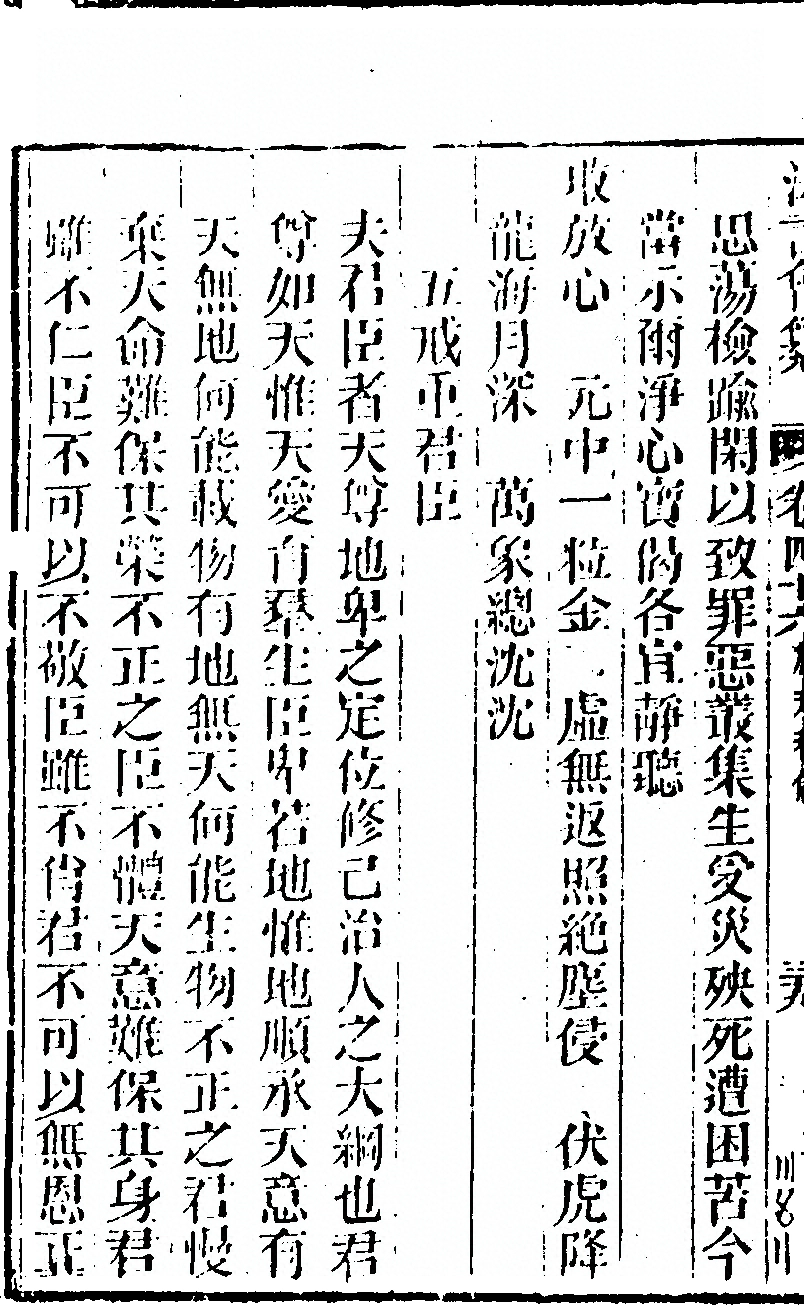 思蕩檢踰閑以致罪惡叢集生受災殃死遭困苦今
當示爾淨心寶偈各宜靜聽
收放心　元中一粒金　虛無返照絕塵侵　伏虎降
龍海月深　萬象總沈沈
五戒重君臣
夫君臣者天尊地卑之定位修己治人之大綱也君
尊如天惟天愛育羣生臣卑若地惟地順承天意有
天無地何能載物有地無天何能生物不正之君慢
棄天命難保其榮不正之臣不體天意難保其身君
雖不仁臣不可以不敬臣雖不肖君不可以無恩正